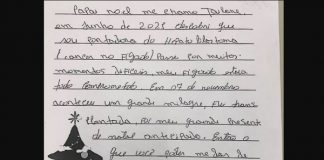 Papai noel me chamo Taulane,
em Junho de 2021 descobri que
sou portadora do Hepato blastoma
(cancer no Figado) Passe por muitos
momentos dificeis meu Figado estava
todo comprometido. Em 07 de novembro
aconteceu um grande milagre, Fui trans
plantada, Foi meu grande present
de natal antecipado. Entao o
que você puder me dar de